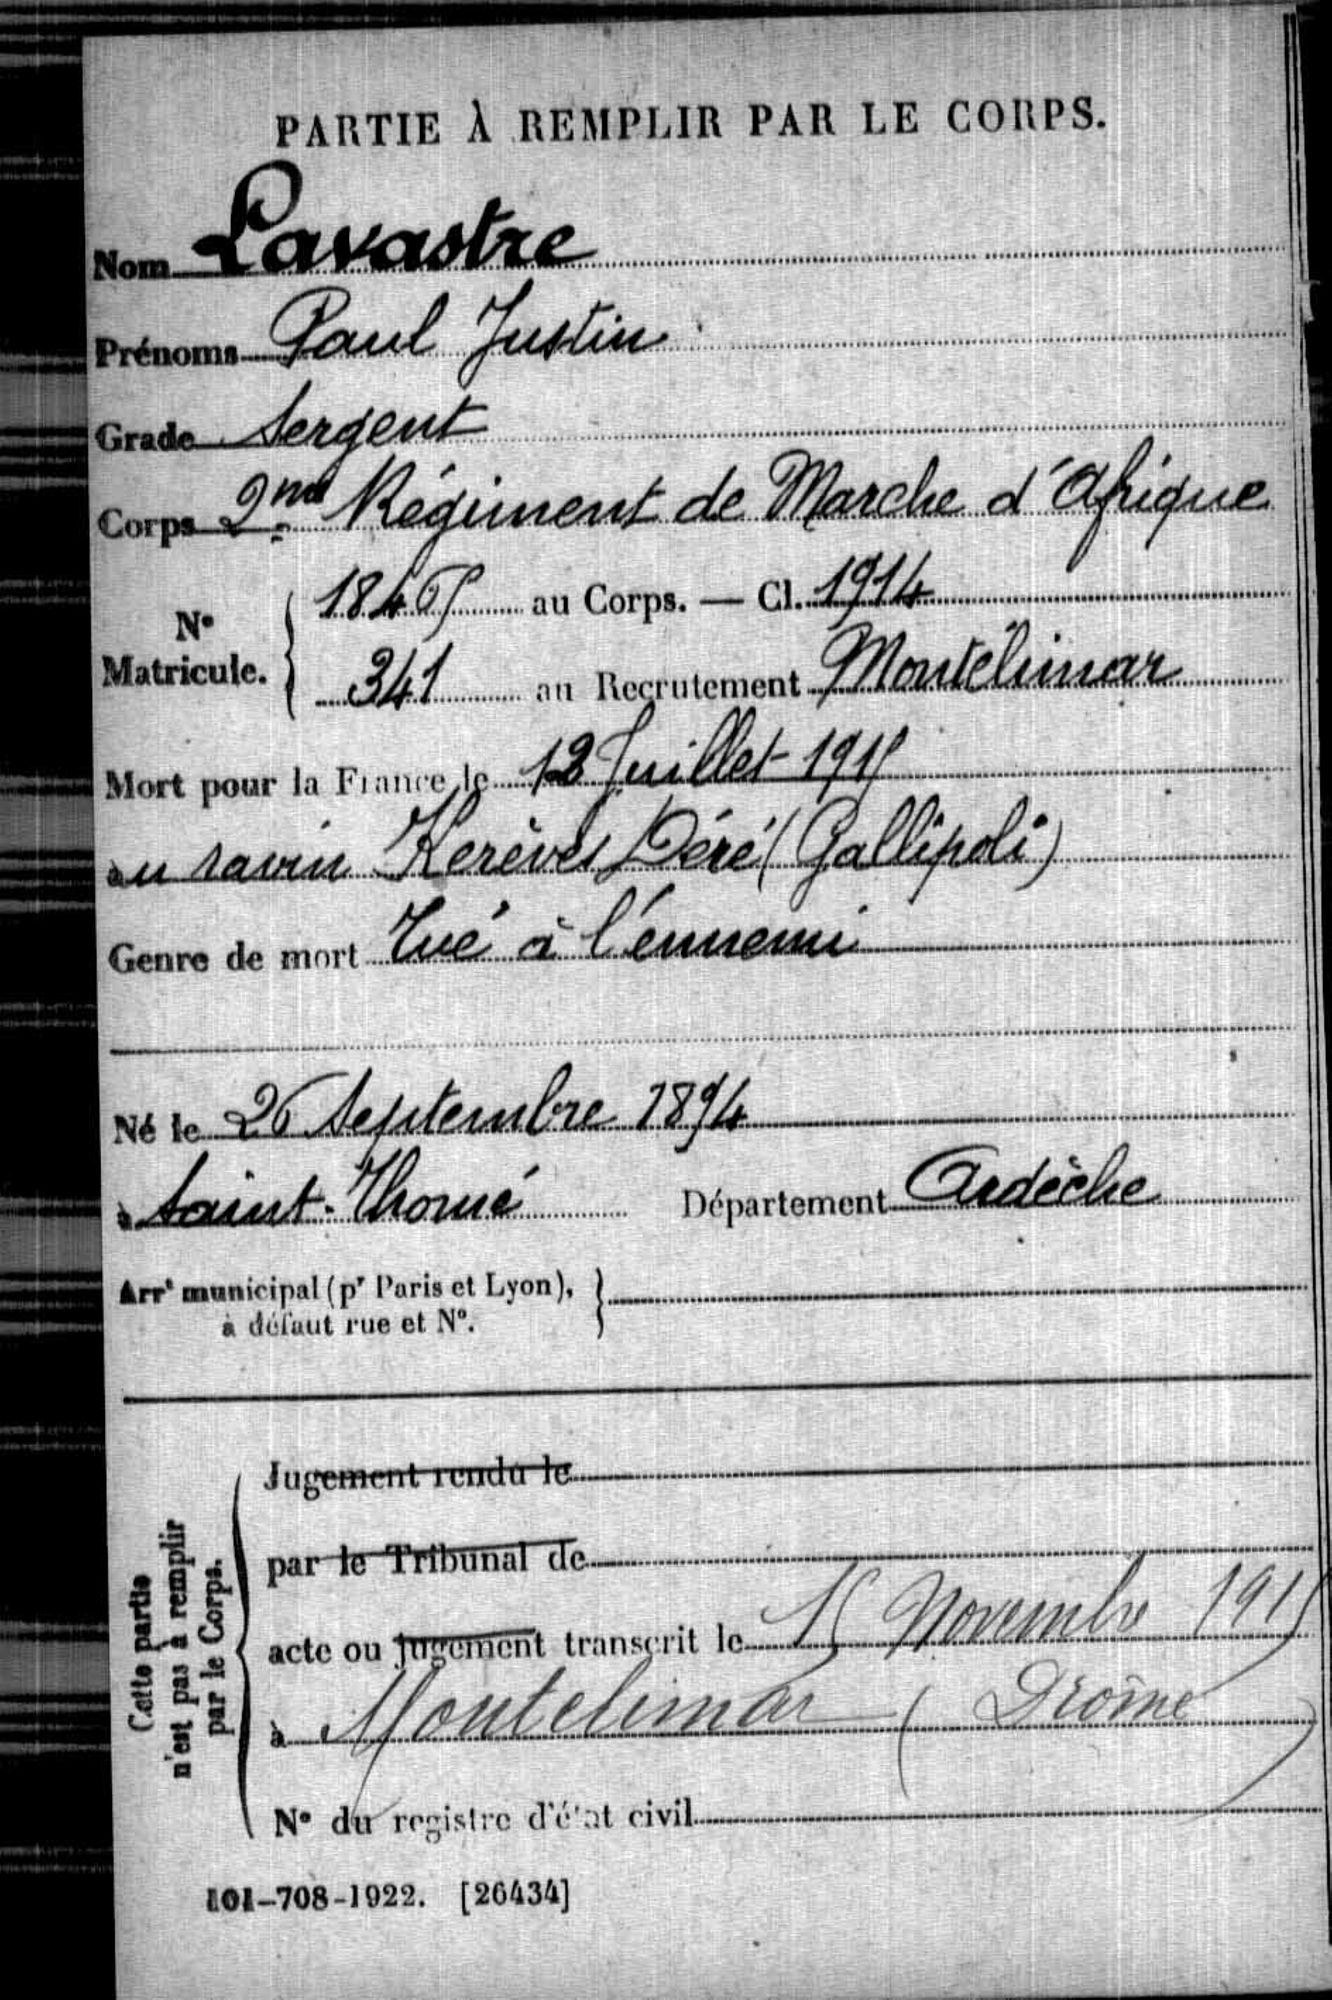 PARTIE À REMPLIR PAR LE CORPS.
Nom Lavastre
Prénoms Paul Justin
Grade Sergent
Corps 2me Régiment de Marche d'Afrique
No Matricule. { au Corps. — Cl. 1914
341 au Recrutement Montélimar
Mort pour la France le 12 Juillet 1915
au ravin Kérèves Déré (Gallipoli)
Genre de mort Tué à l'ennemi
Né le 26 Septembre 1894
à Saint-Thomé Département Ardèche
Arrt municipal (pr Paris et Lyon),
à défaut rue et No. }
Cette partie
n'est pas à remplir
par le Corps.
Jugement rendu le
par le Tribunal de
acte ou jugement transcrit le 15 Novembre 1915
à Montelimar (Drôme)
No du registre d'état civil
101-708-1922. [26434]